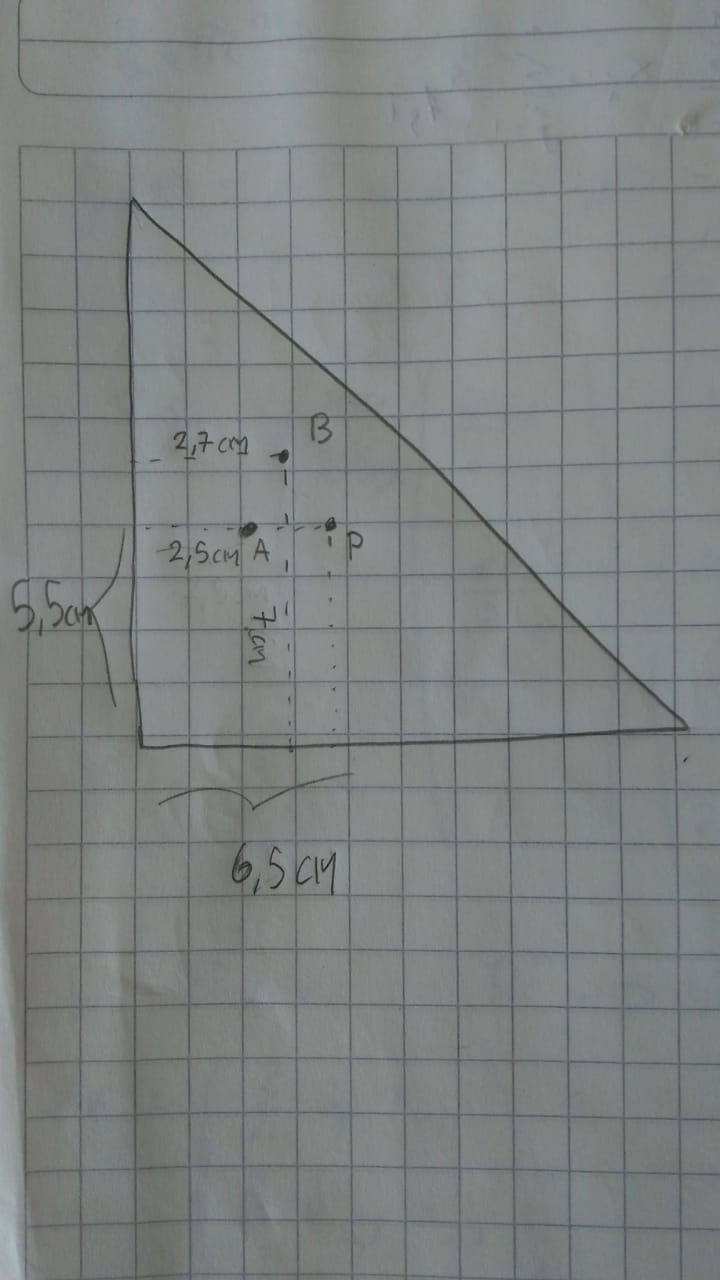 B
2,7cm
2,5cm A
P
5,5cm
7cm
6,5cm